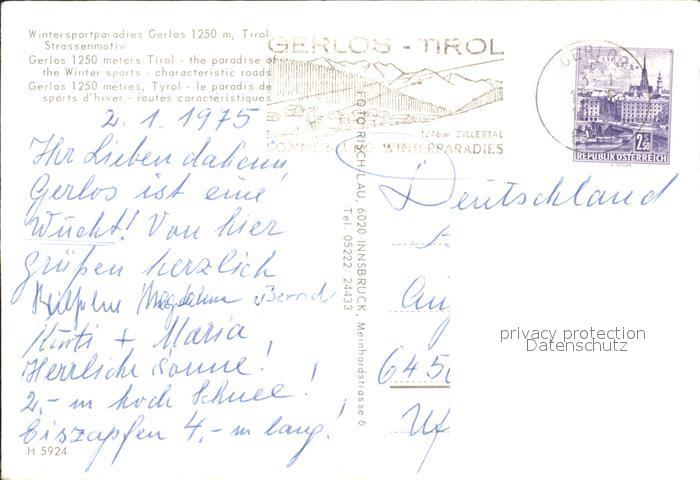 Wintersportparadies Gerlos 1250 m, Tirol
Strassenmotiv
Gerlos 1250 meters Tirol - the paradise of
the Winter sports - characteristic roads
Gerlos 1250 metres, Tyrol - le paradis de
sports d'hiver - routes caractéristiques
GERLOS - TIROL
1246 m ZILLERTAL
SOMMER- UND WINTERPARADIES
GERLOS
2.50
REPUBLIK ÖSTERREICH
2. 1. 1975
Ihr Lieben daheim!
Gerlos ist eine
Wucht! Von hier
grüßen herzlich
Magdalena Bernd
Kurti + Maria
Herrliche Sonne!
2,- m hoch Schnee!
Eiszapfen 4,- m lang!
H 5924
FOTO RISCH-LAU, 6020 INNSBRUCK, Meinhardstrasse 6
Tel. 05222 24433
Deutschland
645
privacy protection
Datenschutz